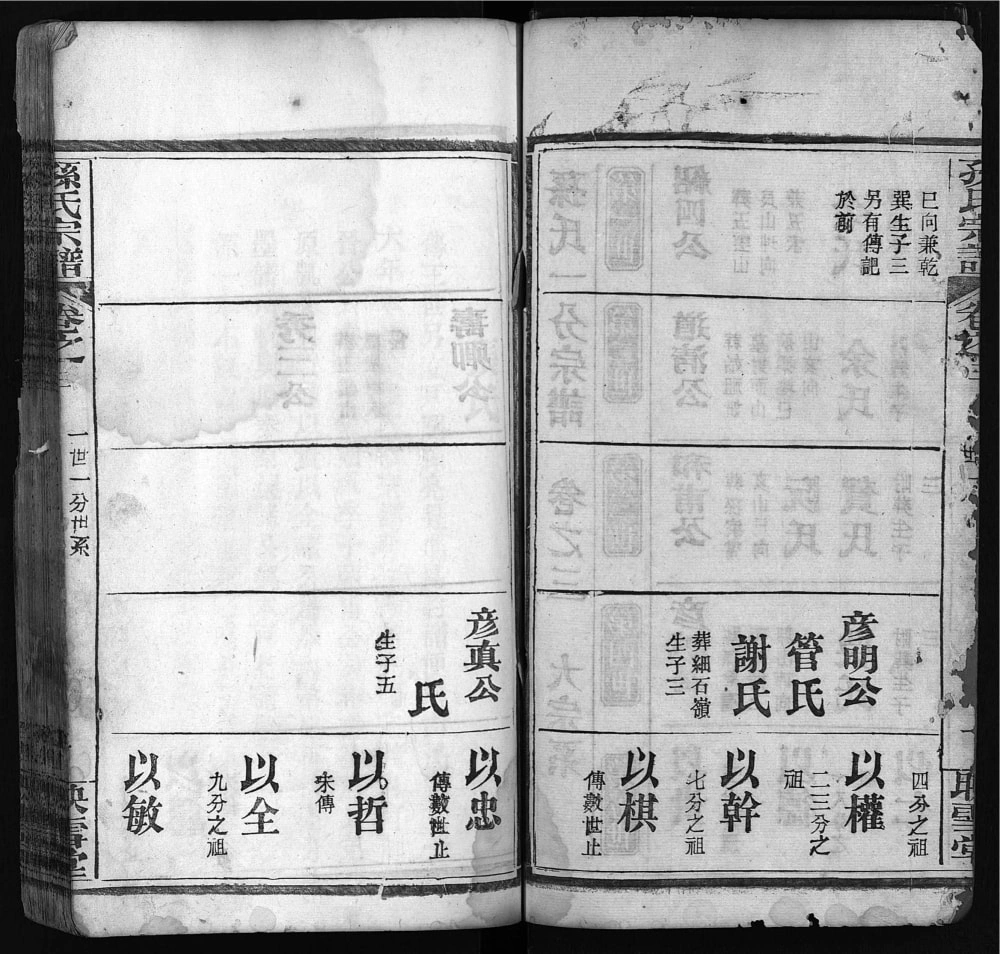 巳向兼乾
巽生子三
另有傳記
於前
彦明公
管氏
謝氏
葬細石嶺
生子三
四分之祖
以權
二三分之
祖
以幹
七分之祖
以棋
傳數世止
彦真公
氏
生子五
以忠
傳數世止
以哲
未傳
以全
九分之祖
以敏
孫氏宗譜
卷之二
一世一分世系
映雪堂